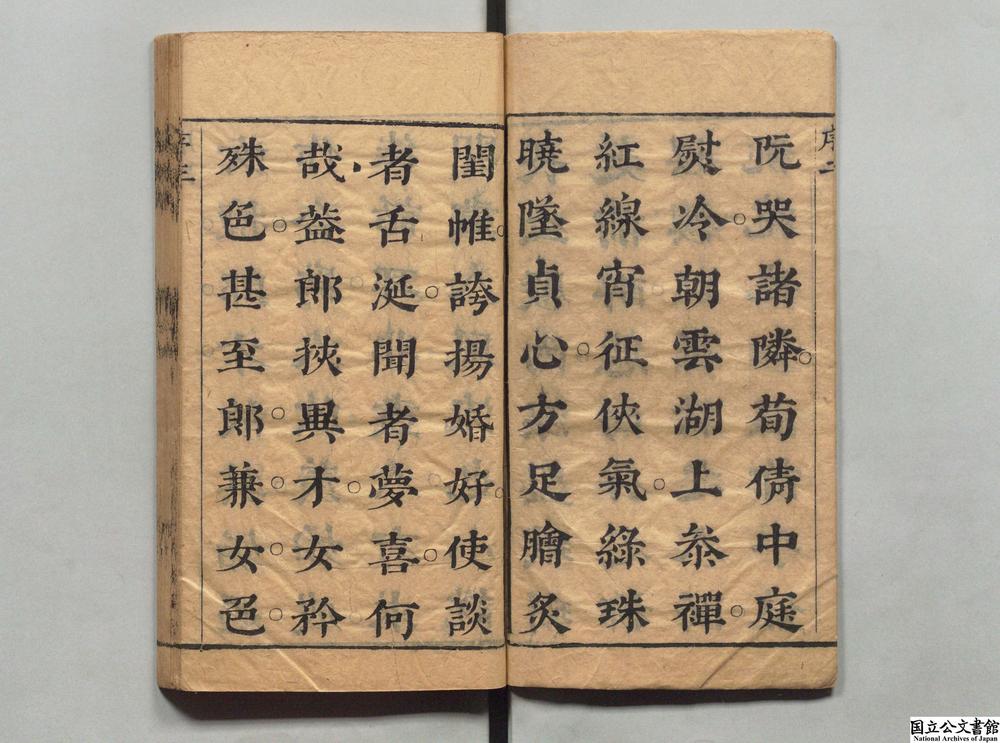 序二
阮哭諸隣荀倩中庭
熨冷朝雲湖上叅禪
紅線宵征俠氣綠珠
曉墜貞心方足膾炙
閨帷誇揚婚好使談
者舌涎聞者夢喜何
哉葢郎挾異才女矜
殊色甚至郎兼女色
序三
国立公文書館
National Archives of Japan